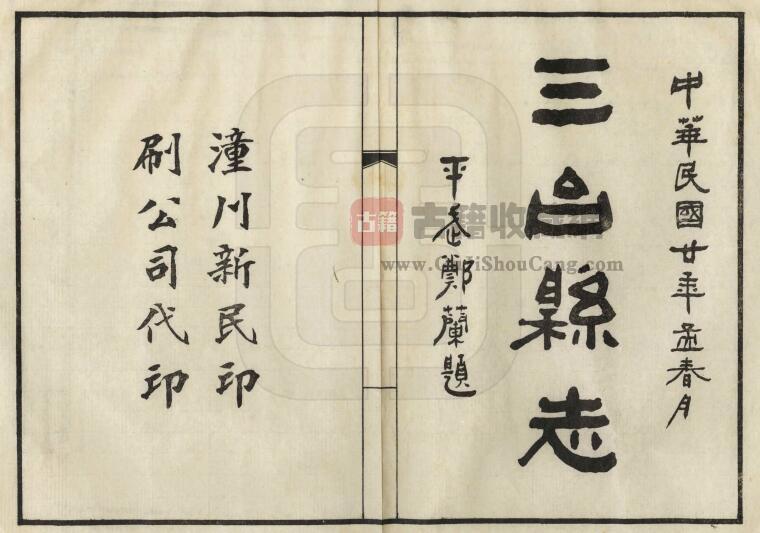 中華民國廿年孟春月
三台縣志
平武鄭蘭題
潼川新民印
刷公司代印
古籍
古籍收藏網
www.GuJiShouCang.com